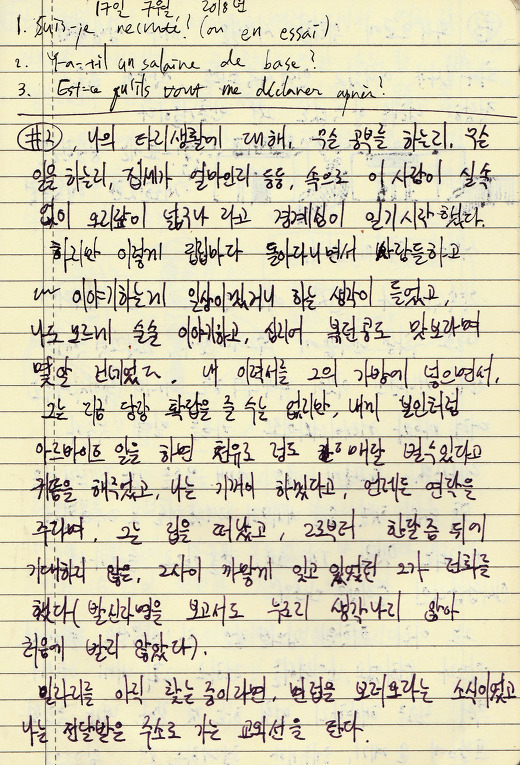 17일 7월 2018년
1. Suis-je recruté? (ou en essai)
2. Y-a-t-il un salaire de base?
3. Est-ce qu'ils vont me déclarer après?
#3, 나의 타지생활에 대해, 무슨 공부를 하는지, 무슨
일을 하는지, 집세가 얼마인지 등등, 속으로 이 사람이 실속
없이 오지랖이 넓구나 라고 경계심이 일기 시작했다.
하지만 이렇게 집집마다 돌아다니면서 사람들하고
이야기하는게 일상이겠거니 하는 생각이 들었고,
나도 모르게 술술 이야기하고, 심지어 볶은콩도 맛보라며
몇알 건네었다. 내 이력서를 그의 가방에 넣으면서,
그는 지금 당장 확답을 줄 수는 없지만, 내게 보인처럼
아르바이트 일을 하면 천유로 정도 매달 벌수있다고
귀띔을 해주었고, 나는 기꺼이 하겠다고, 언제든 연락을
주라며, 그는 집을 떠났고, 그로부터 한달 즘 뒤에
기대하지 않은, 그사이 까맣게 잊고 있었던 그가 전화를
했다( 발신자명을 보고서도 누군지 생각나지 않아
처음에 받지 않았다).
일자리를 아직 찾는 중이라면, 면접을 보러오라는 소식이었고
나는 전달받은 주소로 가는 교외선을 탄다.